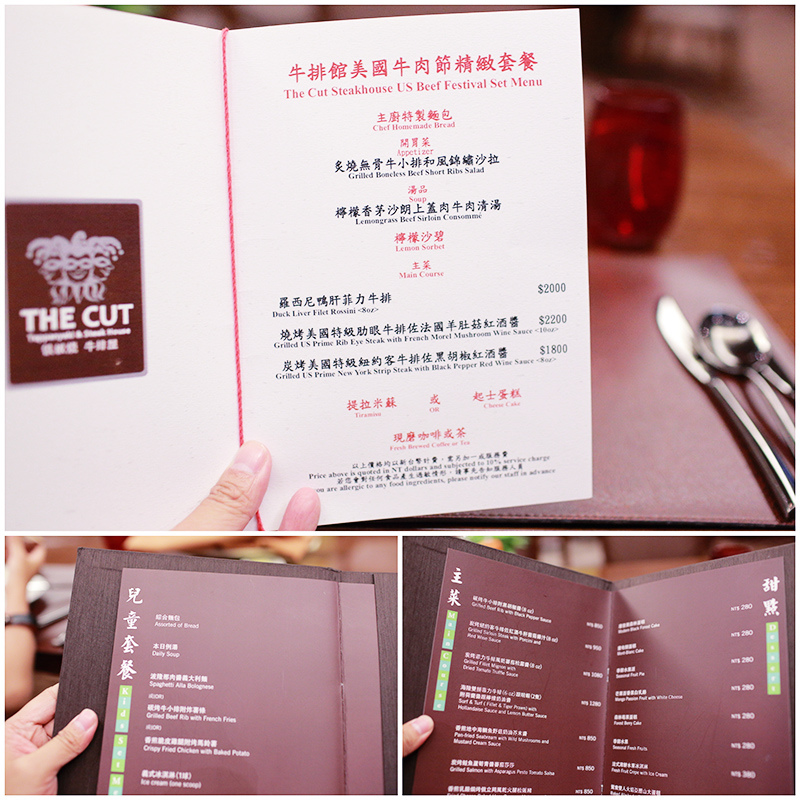 牛排館美國牛肉節精緻套餐
The Cut Steakhouse US Beef Festival Set Menu
主廚特製麵包
Chef Homemade Bread
開胃菜
Appetizer
炙燒無骨牛小排和風錦繡沙拉
Grilled Boneless Beef Short Ribs Salad
湯品
Soup
檸檬香茅沙朗上蓋肉牛肉清湯
Lemongrass Beef Sirloin Consommé
檸檬沙碧
Lemon Sorbet
主菜
Main Course
羅西尼鴨肝菲力牛排 $2000
Duck Liver Filet Rossini <8oz>
燒烤美國特級肋眼牛排佐法國羊肚菇紅酒醬 $2200
Grilled US Prime Rib Eye Steak with French Morel Mushroom Wine Sauce <10oz>
炭烤美國特級紐約客牛排佐黑胡椒紅酒醬 $1800
Grilled US Prime New York Strip Steak with Black Pepper Red Wine Sauce <8oz>
提拉米蘇 或 起士蛋糕
Tiramisu OR Cheese Cake
現磨咖啡或茶
Fresh Brewed Coffee or Tea
以上價格均以新台幣計費，需另加一成服務費
Price above is quoted in NT dollars and subjected to 10% service charge
若您會對任何食品產生過敏情形，請事先告知服務人員
you are allergic to any food ingredients, please notify our staff in advance
THE CUT
Teppanyaki & Steak House
牛排館
兒童套餐
Kids Set Me
綜合麵包
Assorted of Bread
本日例湯
Daily Soup
波隆那肉醬義大利麵
Spaghetti Alla Bolognese
或(OR)
碳烤牛小排附薯條
Grilled Beef Rib with French Fries
或(OR)
香煎脆皮雞腿附烤馬鈴薯
Crispy Fried Chicken with Baked Potato
義式冰淇淋(1球)
Ice cream (one scoop)
主菜
Main Course
碳烤牛小排附黑胡椒醬(8 oz) NT$ 850
Grilled Beef Rib with Black Pepper Sauce
Grilled Sirloin Steak with Porcini and NT$ 850
Red Wine Sauce
NT$ 1080
Grilled Fillet Mignon with
Dried Tomato Truffle Sauce
NT$ 1280
Surf & Turf ( Fillet & Tiger Prawn) with
Hollandaise Sauce and Lemon Butter Sauce
NT$ 850
Pan-fried Seabream with Wild Mushrooms and
Mustard Cream Sauce
NT$ 850
Grilled Salmon with Asparagus Pesto Tomato Salsa
甜點
Dessert
NT$ 280
Modern Black Forest Cake
NT$ 280
Black-Blanc Cake
NT$ 280
Seasonal Pie
NT$ 280
Mango Passion Fruit with White Cheese
NT$ 280
Food Berry Cake
NT$ 280
Seasonal Fresh Fruits
NT$ 380
Fresh Fruit Crepe with Ice Cream